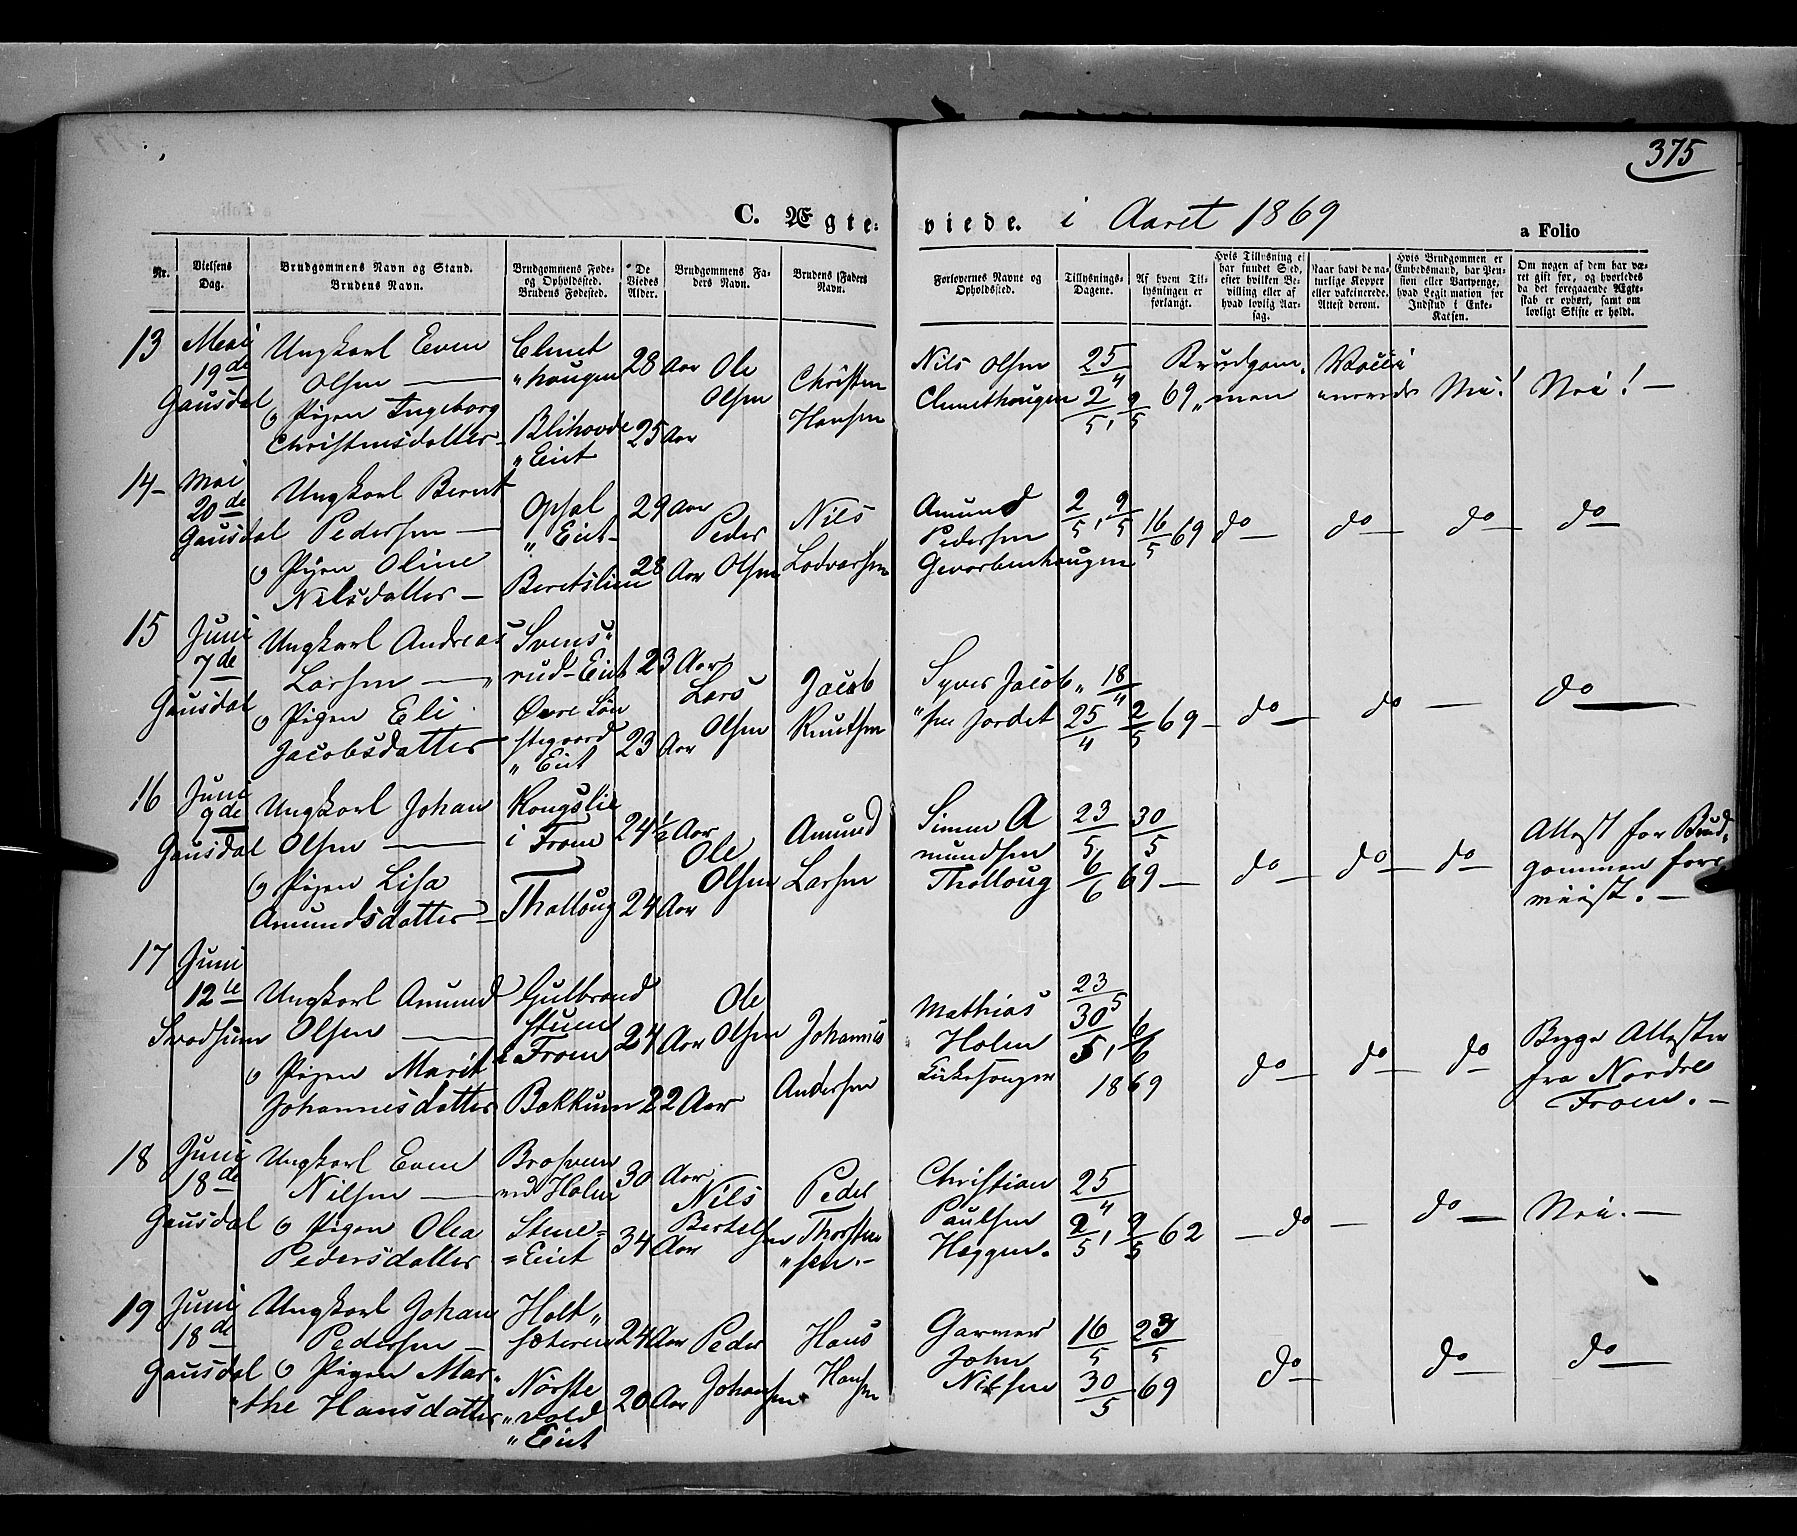 375
C. Ægte-viede. i Aaret 1869
a Folio
Nr.
Vielsens Dag.
Brudgommens Navn og Stand. Brudens Navn.
Brudgommens Føde- og Opholdssted. Brudens Fødested.
De Viedes Alder.
Brudgommens Faders Navn.
Brudens Faders Navn.
Forlovernes Navne og Opholdssted.
Tillysnings-Dagene.
Af hvem Tillysningen er forlangt.
Hvis Tillysning ei har fundet Sted, efter hvilken Bevilling eller af hvad lovlig Aarsag.
Naar havt de naturlige Kopper eller vakcinerede. Attest derom.
Hvis Brudgommen er Embedsmand, har Pension eller Vartpenge, hvad Legitimation for Indskud i Enke-Kassen.
Om nogen af dem har været gift før, og hvorledes da det foregaaende Ægteskab er ophørt, samt om lovligt Skifte er holdt.
13 Mai 19de Gausdal
Ungkarl Even Olsen —
o Pigen Ingeborg Christensdatter
28 Aar
25 Aar
Ole Olsen
Christen Hansen
Nils Olsen
25/4 2/5, 9/5 69
Brudgom„man
Nei! Nei! —
14 Mai 20de Gausdal
Ungkarl Bernt Pedersen —
o Pigen Oline Nilsdatter —
Opsal „Eiet
Beretslien
29 Aar
28 Aar
Peder Olsen
Nils
Amund Pedersen
2/5, 9/5 16/5 69
do — do — do — do
15 Juni 7de Gausdal
Ungkarl Andreas Larsen —
o Pigen Eli Jacobsdatter
Svens„rud-Eiet
Øvre „Eiet
23 Aar
23 Aar
Lars Olsen
Jacob Knutsen
Syver Jacob„sen Jordet
18/4 25/4 2/5 69 —
do — do — do —
16 Juni 9de Gausdal
Ungkarl Johan Olsen —
o Pigen Lisa Amundsdatter
Kongslie i Fron
Thalloug
24½ Aar
24 Aar
Ole Olsen
Amund Larsen
Simen Amundsen Thalloug
23/5, 30/5 6/6 69 —
do — do — do —
Attest for Brudgommen
17 Juni 12te
Ungkarl Amund Olsen —
o Pigen Marit Johannesdatter
Gulbrandstuen i Fron
Bakkum
24 Aar
22 Aar
Ole Olsen
Johannes Andersen
Mathias Holm Kirkesanger
23/5 30/5, 6/6 1869
do — do — do
Begge Attester fra Nordre Fron. —
18 Juni 18de Gausdal
Ungkarl Even Nilsen —
o Pigen Olea Pedersdatter
Stene= =Eiet
30 Aar
34 Aar
Nils Bertelsen
Peder Thorsten„sen. —
Christian Paulsen Heggen.
25/4 2/5, 9/5 62
— do — do — Nei. —
19 Juni 18de Gausdal
Ungkarl Johan Pedersen —
o Pigen Mar„the Hansdatter
Holt„sæteren
Nørste„vold „Eiet
24 Aar
20 Aar
Peder Johansen
Hans Hansen
Garver John Nilsen
16/5 23/5 30/5 69
do — do — do —